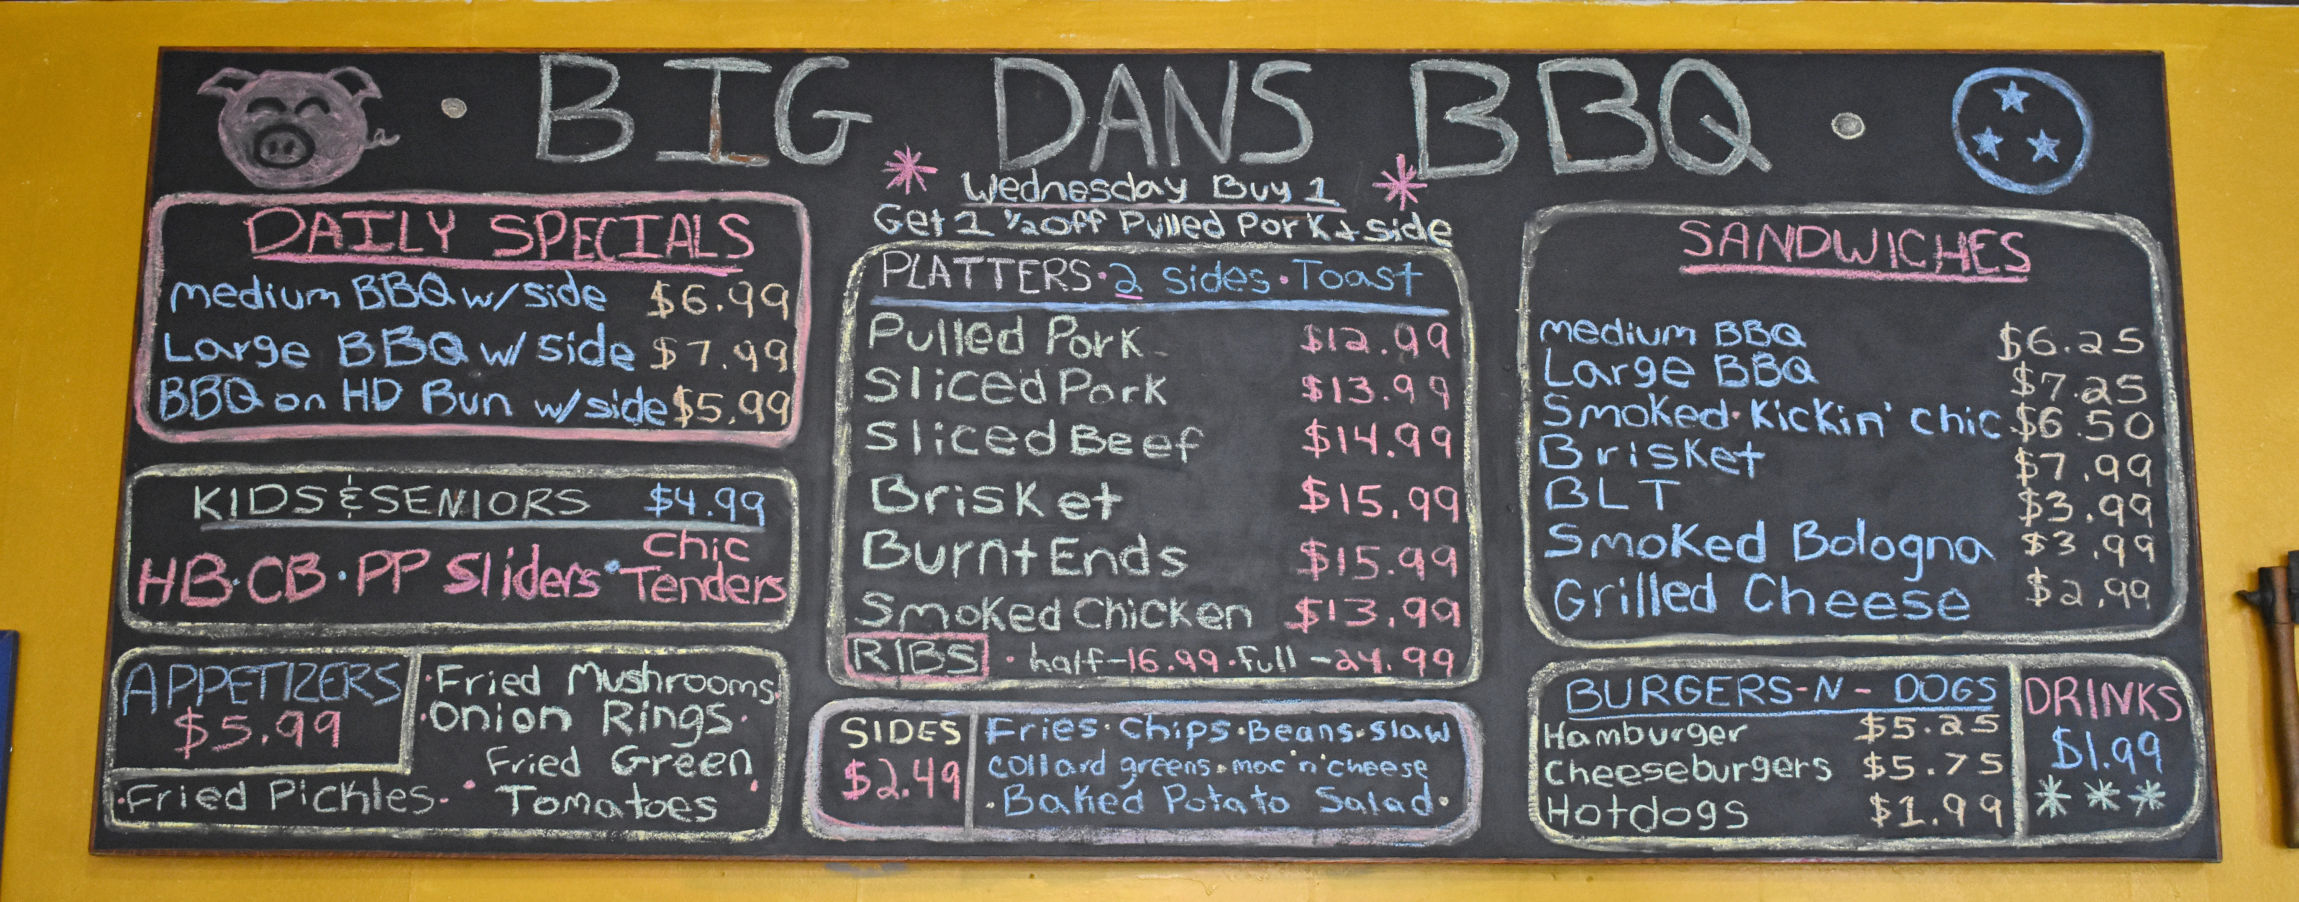 BIG DANS BBQ
Wednesday Buy 1
Get 1 ½ Off Pulled Pork & side
DAILY SPECIALS
medium BBQ w/ side $6.99
Large BBQ w/ side $7.99
BBQ on HD Bun w/ side $5.99
KIDS & SENIORS $4.99
HB · CB · PP Sliders · Chic Tenders
APPETIZERS
$5.99
· Fried Mushrooms
· Onion Rings ·
Fried Green
Tomatoes
· Fried Pickles ·
PLATTERS · 2 sides · Toast
Pulled Pork $12.99
Sliced Pork $13.99
Sliced Beef $14.99
Brisket $15.99
Burnt Ends $15.99
Smoked Chicken $13.99
RIBS · half - 16.99 · full - 24.99
SIDES
$2.49
Fries · Chips · Beans · Slaw
collard greens · mac 'n' cheese
· Baked Potato Salad ·
SANDWICHES
medium BBQ $6.25
Large BBQ $7.25
Smoked · Kickin' chic $6.50
Brisket $7.99
BLT $3.99
Smoked Bologna $3.99
Grilled Cheese $2.99
BURGERS - N - DOGS
Hamburger $5.25
Cheeseburgers $5.75
Hotdogs $1.99
DRINKS
$1.99